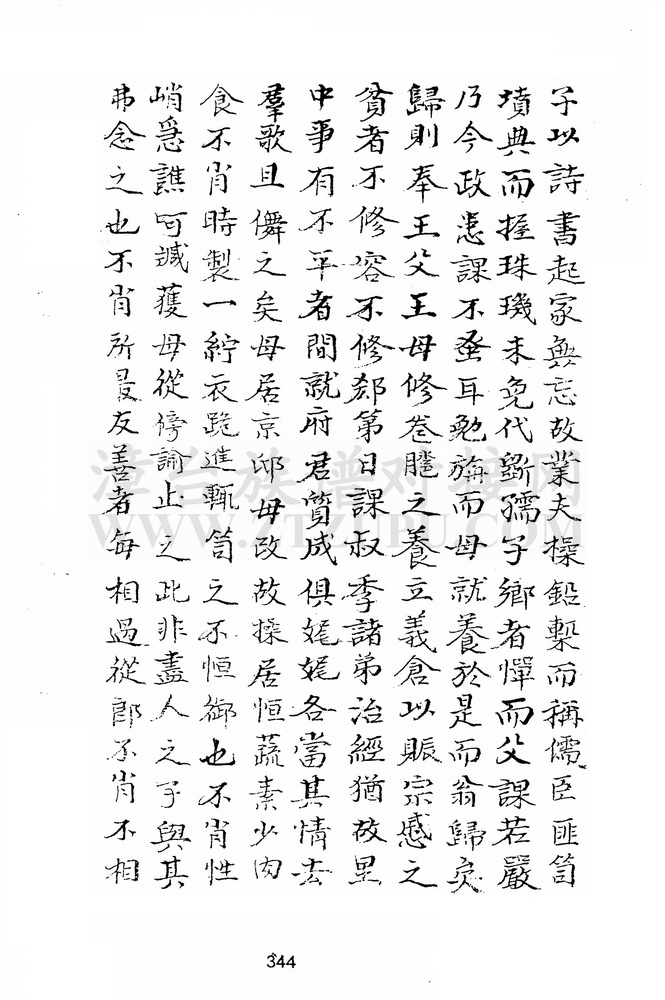 子以詩書起家無忘故業夫操鉛槧而稱儒臣匪笥
墳典而握珠璣未免代斲孺子鄉者憚而父課若嚴
乃今政恚課不蚤耳勉旃而母就養於是而翁歸矣
歸則奉王父王母修巹䐑之養立義倉以賑宗慼之
貧者不修容不修郄第日課叔季諸弟治經猶故里
中事有不平者間就府君質成俱娓娓各當其情去
羣歌且儛之矣母居京邸毋改故操居恒蔬素少肉
食不肖時製一紵衣跪進輒笥之不恒御也不肖性
峭急譙呵臧獲母從傍諭止之此非盡人之子與其
弗念之也不肖所最友善者每相過從郎不肖不相
漳台族谱对接网
WWW.ZTZUPU.COM
344